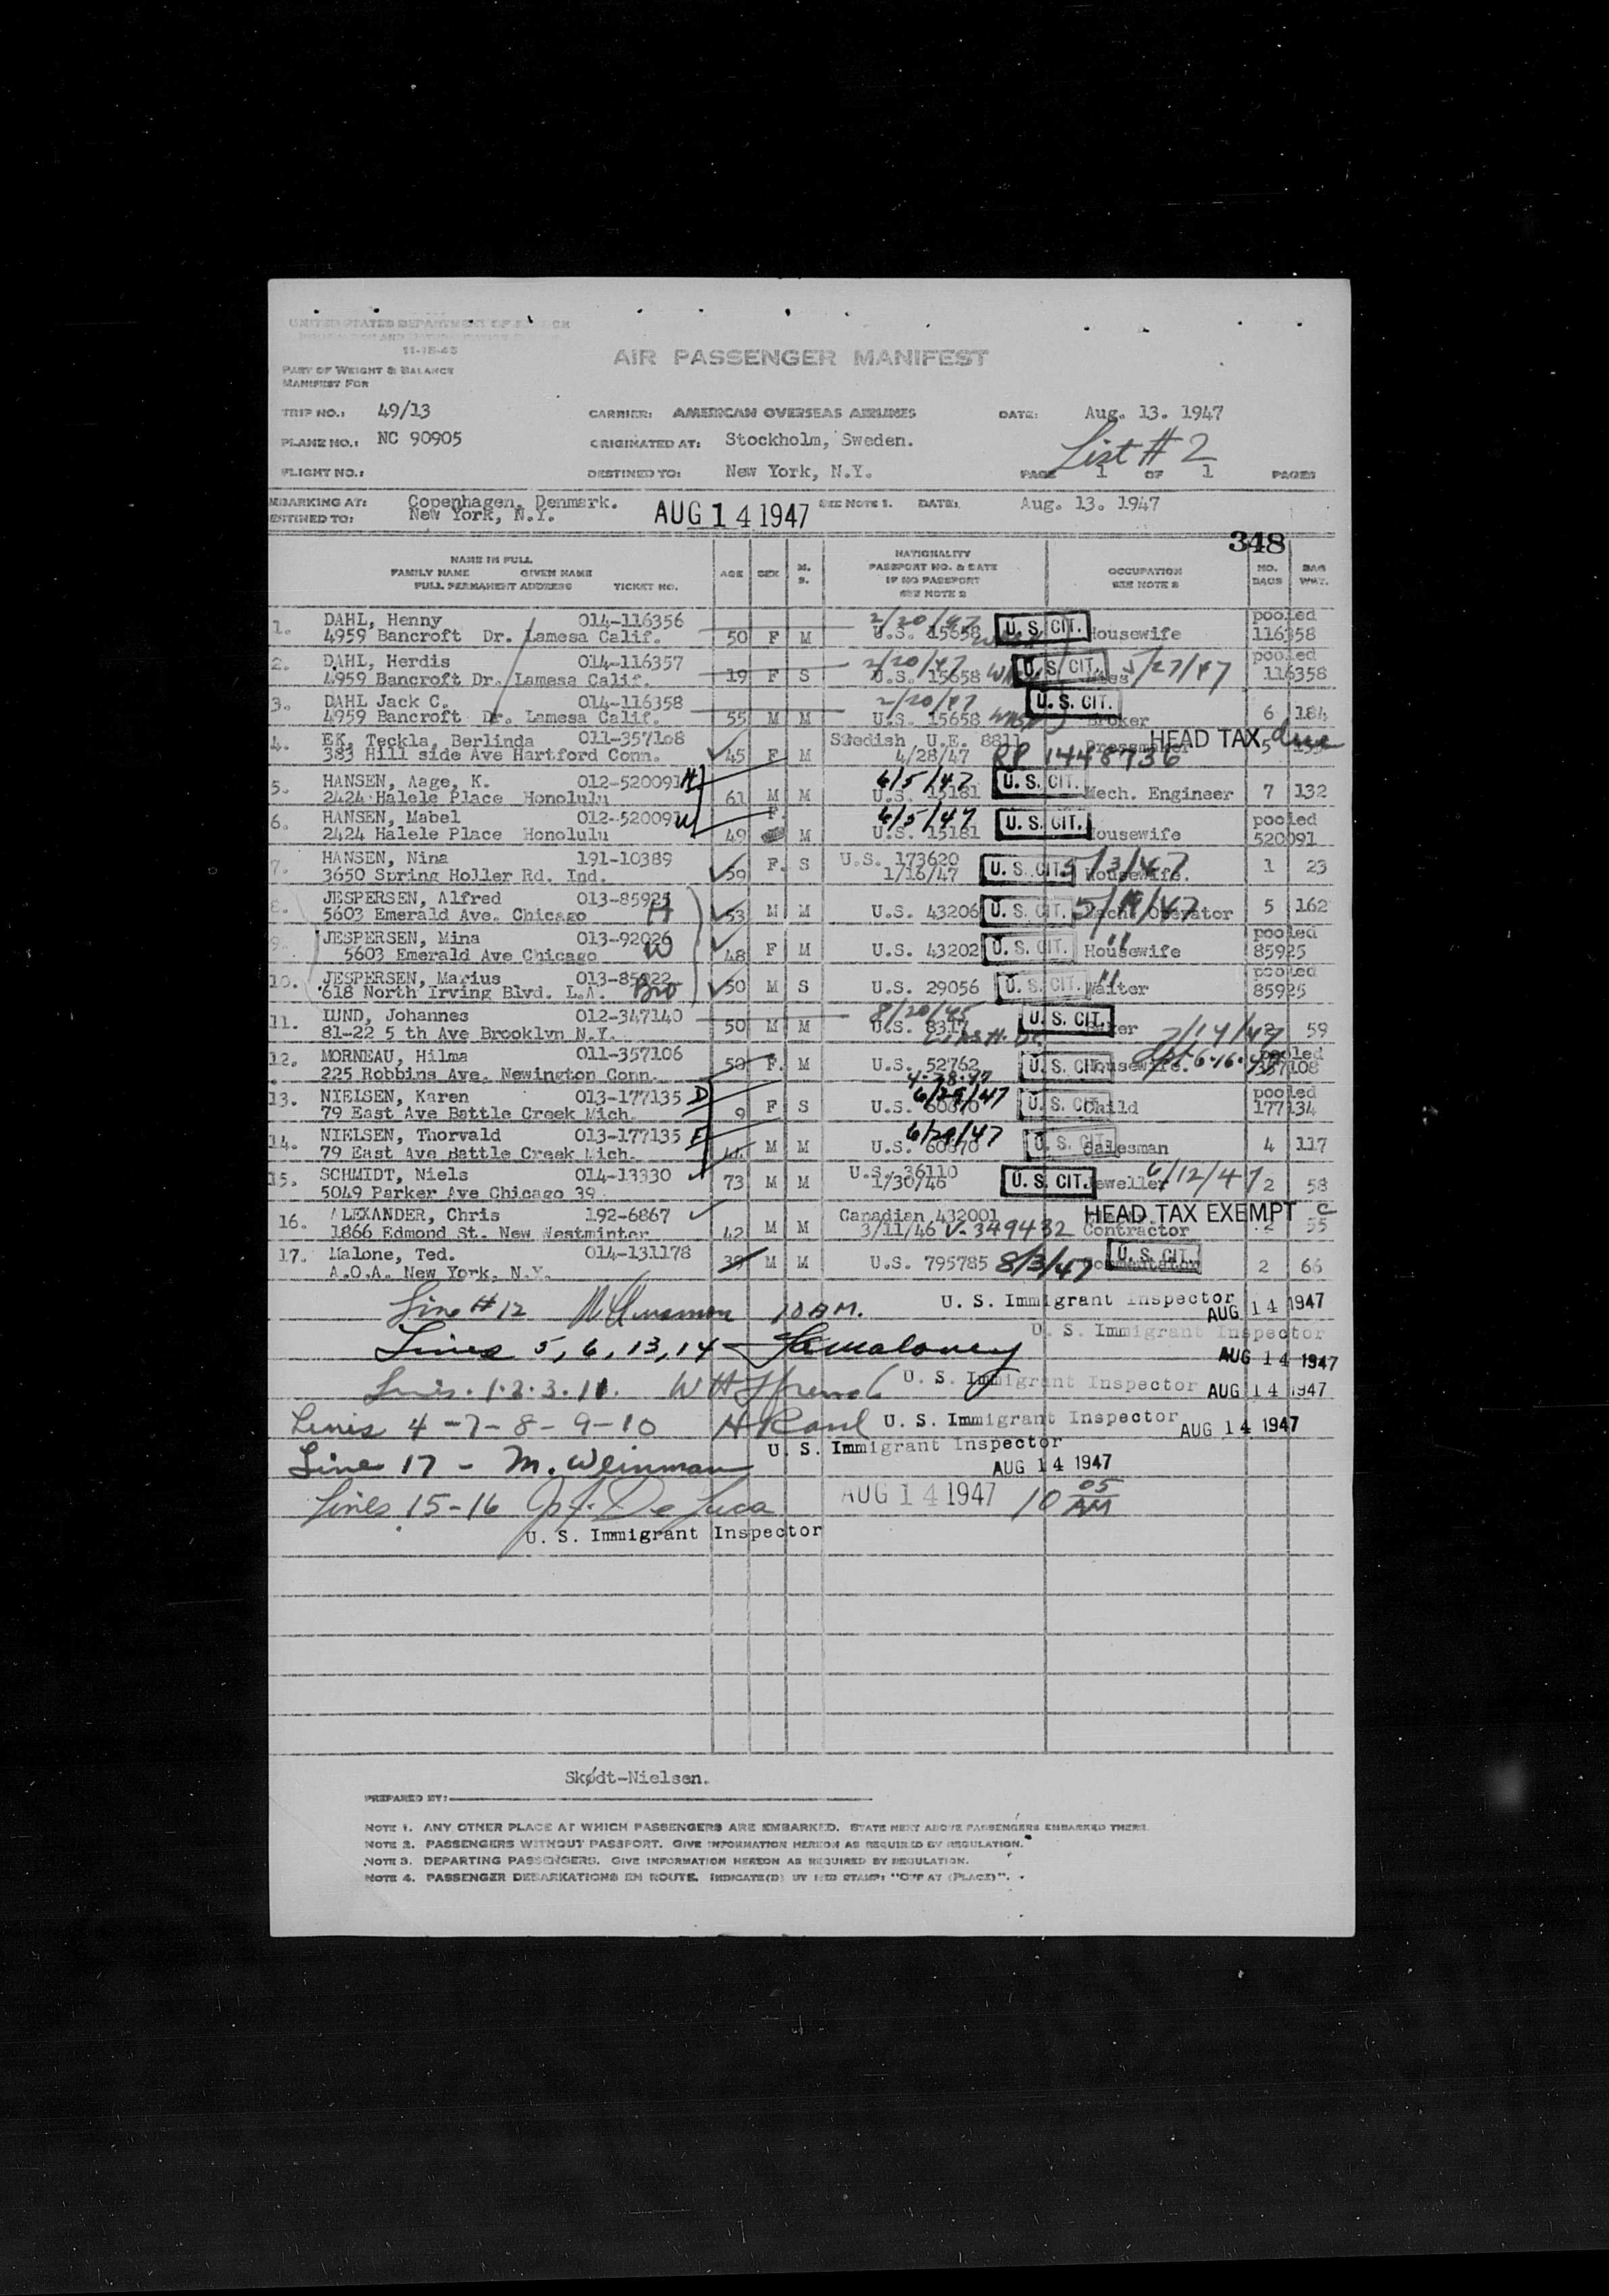 UNITED STATES DEPARTMENT OF JUSTICE
11-15-45
AIR PASSENGER MANIFEST
PART OF WEIGHT & BALANCE
MANIFEST FOR
TRIP NO.: 49/13 CARRIER: AMERICAN OVERSEAS AIRLINES DATE: Aug. 13. 1947
PLANE NO.: NC 90905 ORIGINATED AT: Stockholm, Sweden. List # 2
FLIGHT NO.: DESTINED TO: New York, N.Y. PAGE 1 OF 1 PAGES
MBARKING AT: Copenhagen, Denmark. SEE NOTE 1. DATE: Aug. 13. 1947
ESTINED TO: New York, N.Y. AUG 14 1947
348
NAME IN FULL
FAMILY NAME GIVEN NAME
FULL PERMANENT ADDRESS TICKET NO.
AGE SEX M. S.
NATIONALITY
PASSPORT NO. & DATE
IF NO PASSPORT
SEE NOTE 2
OCCUPATION
SEE NOTE 2
NO. BAGS
BAG WGT.
1. DAHL, Henny 014-116356 2/20/47 pooled
4959 Bancroft Dr. Lamesa Calif. 50 F M U.S. 15658 U.S. CIT. Housewife 116358
2. DAHL, Herdis 014-116357 2/20/47 pooled
4959 Bancroft Dr. Lamesa Calif. 19 F S U.S. 15658 U.S. CIT. 5/27/47 116358
3. DAHL Jack C. 014-116358 2/20/47 U.S. CIT.
4959 Bancroft Dr. Lamesa Calif. 55 M M U.S. 15658 Wash Broker 6 184
4. EK, Teckla, Berlinda 011-357108 Swedish U.E. 8811 HEAD TAX due
383 Hill side Ave Hartford Conn. 45 F M 4/28/47 RP 1448736 Dressmaker 5
5. HANSEN, Aage, K. 012-520091 H 6/5/47 U.S. CIT.
2424 Halele Place Honolulu 61 M M U.S. 15181 Mech. Engineer 7 132
6. HANSEN, Mabel 012-52009 W F. 6/5/47 pooled
2424 Halele Place Honolulu 49 M U.S. 15181 U.S. CIT. Housewife 520091
7. HANSEN, Nina 191-10389 F. S U.S. 173620
3650 Spring Holler Rd. Ind. 59 1/16/47 U.S. CIT. 5/3/47 Housewife. 1 23
8. JESPERSEN, Alfred 013-85925
5603 Emerald Ave. Chicago H 53 M M U.S. 43206 U.S. CIT. 5/19/47 Mach. Operator 5 162
9. JESPERSEN, Mina 013-92026 pooled
5603 Emerald Ave Chicago W 48 F M U.S. 43202 U.S. CIT. " Housewife 85925
10. JESPERSEN, Marius 013-85922 pooled
618 North Irving Blvd. L.A. Bro 50 M S U.S. 29056 U.S. CIT. " Waiter 85925
11. LUND, Johannes 012-347140 8/20/45
81-22 5 th Ave Brooklyn N.Y. 50 M M U.S. 8317 Wash. DC U.S. CIT. Baker 7/14/47 2 59
12. MORNEAU, Hilma 011-357106 pooled
225 Robbins Ave. Newington Conn. 50 F. M U.S. 52762 4-28-47 U.S. CIT. Housewife. 6-16-47 357108
13. NIELSEN, Karen 013-177135 D 6/29/47 pooled
79 East Ave Battle Creek Mich. 9 F S U.S. 60870 U.S. CIT. Child 177134
14. NIELSEN, Thorvald 013-177135 F 6/29/47
79 East Ave Battle Creek Mich. M M U.S. 60870 U.S. CIT. Salesman 4 117
15. SCHMIDT, Niels 014-13330 U.S. 36110 6/12/47
5049 Parker Ave Chicago 39 73 M M 1/30/46 U.S. CIT. Jeweller 2 58
16. ALEXANDER, Chris 192-6867 Canadian 432001 HEAD TAX EXEMPT C
1866 Edmond St. New Westminter 42 M M 3/11/46 V-349432 Contractor 2 55
17. Malone, Ted. 014-131178 U.S. CIT.
A.O.A. New York, N.Y. 39 M M U.S. 795785 8/3/47 Commentator 2 66
Line # 12 10 AM. U. S. Immigrant Inspector AUG 14 1947
Lines 5, 6, 13, 14 Maloney U. S. Immigrant Inspector AUG 14 1947
Lines. 1.2.3.11. U. S. Immigrant Inspector AUG 14 1947
Lines 4-7-8-9-10 U. S. Immigrant Inspector AUG 14 1947
Line 17 - M. Weinman U. S. Immigrant Inspector AUG 14 1947
Lines 15-16 De Luca AUG 14 1947 10 05 AM
U. S. Immigrant Inspector
Skødt-Nielsen.
PREPARED BY:
NOTE 1. ANY OTHER PLACE AT WHICH PASSENGERS ARE EMBARKED. STATE NEXT ABOVE PASSENGERS EMBARKED THERE.
NOTE 2. PASSENGERS WITHOUT PASSPORT. GIVE INFORMATION HEREON AS REQUIRED BY REGULATION.
NOTE 3. DEPARTING PASSENGERS. GIVE INFORMATION HEREON AS REQUIRED BY REGULATION.
NOTE 4. PASSENGER DEBARKATIONS EN ROUTE. INDICATE(D) BY RED STAMP: "OFF AT (PLACE)".